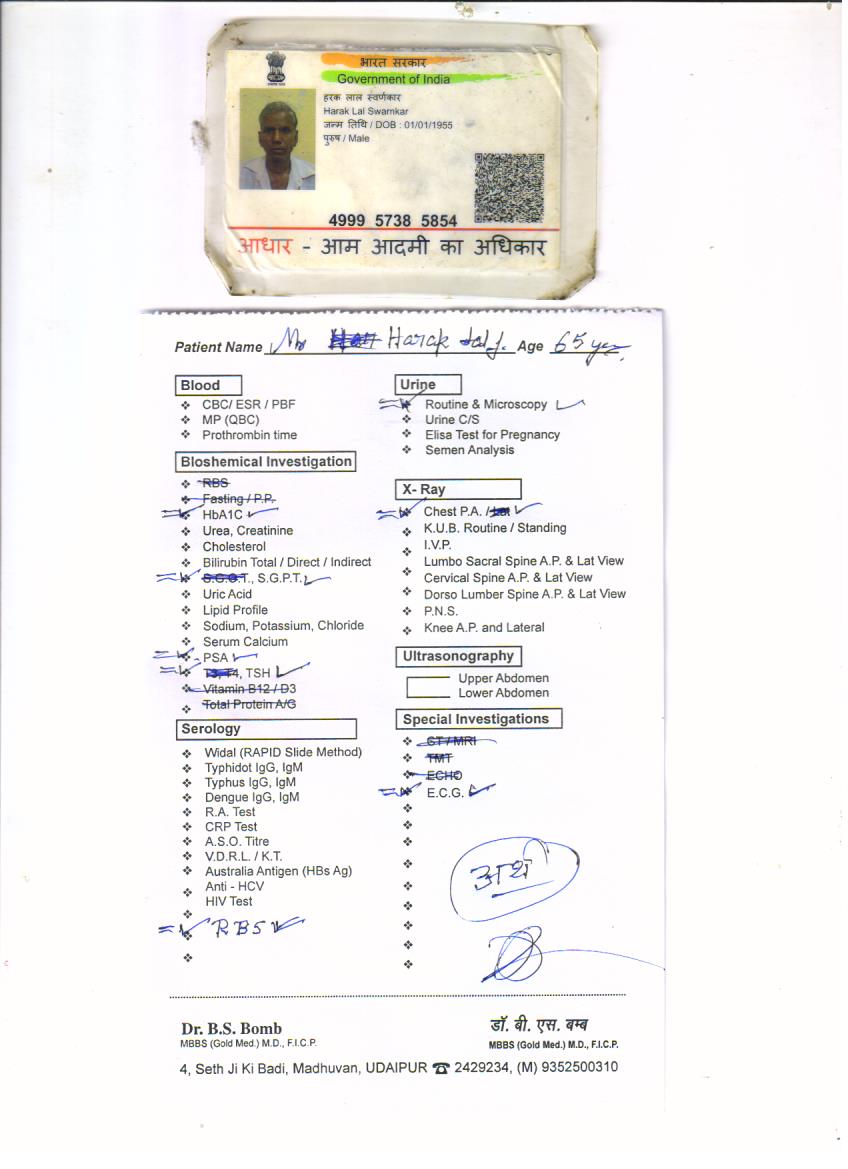 भारत सरकार
Government of India
हरक लाल स्वर्णकार
Harak Lal Swarnkar
जन्म तिथि / DOB : 01/01/1955
पुरुष / Male
4999 5738 5854
आधार - आम आदमी का अधिकार
Patient Name Mr Harak Lal J. Age 65 yrs.
Blood
CBC/ ESR / PBF
MP (QBC)
Prothrombin time
Bloshemical Investigation
RBS
Fasting / P.P.
HbA1C
Urea, Creatinine
Cholesterol
Bilirubin Total / Direct / Indirect
S.G.O.T., S.G.P.T.
Uric Acid
Lipid Profile
Sodium, Potassium, Chloride
Serum Calcium
PSA
T3, T4, TSH
Vitamin B12 / D3
Total Protein A/G
Serology
Widal (RAPID Slide Method)
Typhidot IgG, IgM
Typhus IgG, IgM
Dengue IgG, IgM
R.A. Test
CRP Test
A.S.O. Titre
V.D.R.L. / K.T.
Australia Antigen (HBs Ag)
Anti - HCV
HIV Test
RBS
Urine
Routine & Microscopy
Urine C/S
Elisa Test for Pregnancy
Semen Analysis
X- Ray
Chest P.A. /
K.U.B. Routine / Standing
I.V.P.
Lumbo Sacral Spine A.P. & Lat View
Cervical Spine A.P. & Lat View
Dorso Lumber Spine A.P. & Lat View
P.N.S.
Knee A.P. and Lateral
Ultrasonography
Upper Abdomen
Lower Abdomen
Special Investigations
CT / MRI
TMT
ECHO
E.C.G.
Dr. B.S. Bomb
MBBS (Gold Med.) M.D., F.I.C.P.
डॉ. बी. एस. बम्ब
MBBS (Gold Med.) M.D., F.I.C.P.
4, Seth Ji Ki Badi, Madhuvan, UDAIPUR ☎ 2429234, (M) 9352500310